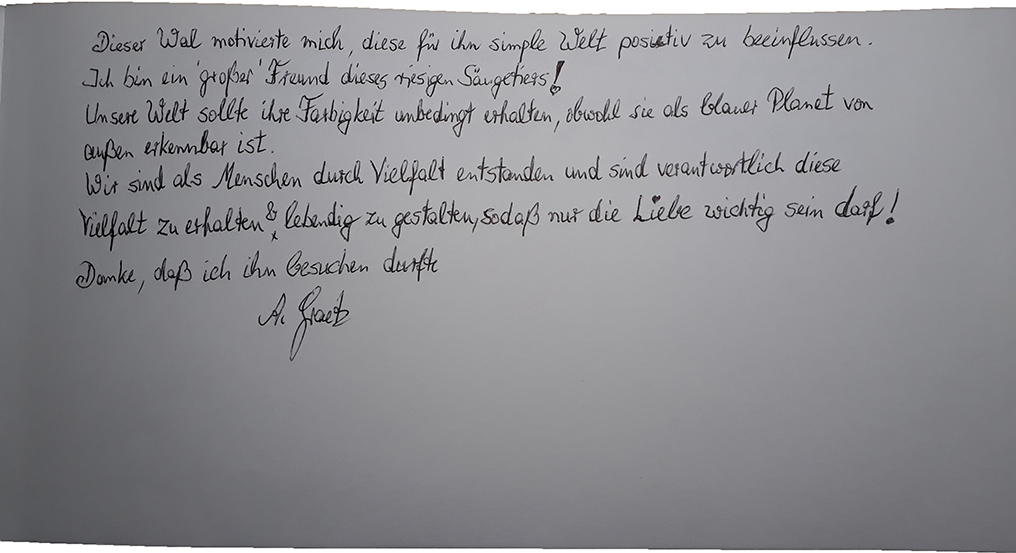 Dieser Wal motivierte mich, diese für ihn simple Welt positiv zu beeinflussen.
Ich bin ein 'großer' Freund dieses riesigen Säugetiers!
Unsere Welt sollte ihre Farbigkeit unbedingt erhalten, obwohl sie als blauer Planet von
außen erkennbar ist.
Wir sind als Menschen durch Vielfalt entstanden und sind verantwortlich diese
Vielfalt zu erhalten & lebendig zu gestalten, sodaß nur die Liebe wichtig sein darf!
Danke, daß ich ihn besuchen durfte
A. Graetz